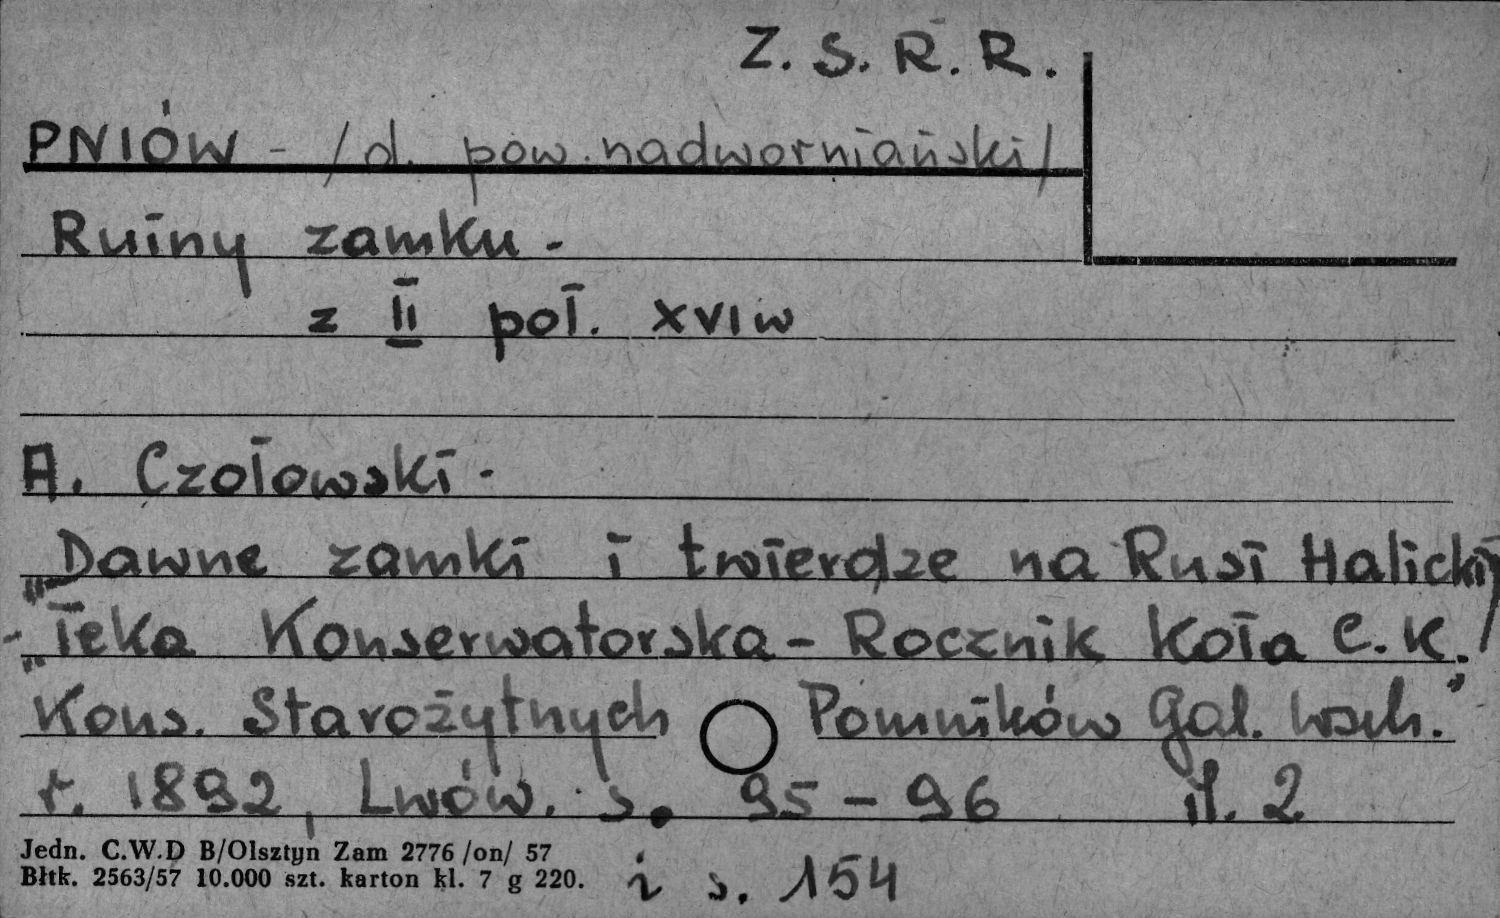 Z. S. R. R.
PNIÓW - /d. pow. nadworniański/
Ruiny zamku -
z II poł. XVI w
A. Czołowski -
Dawne zamki i twierdze na Rusi Halickiej/
- "Teka Konserwatorska - Rocznik Koła C. K.
Kons. Starożytnych Pomników Gal. Wsch."
r. 1892, Lwów. s. 95 - 96 il. 2
i s. 154
Jedn. C.W.D B/Olsztyn Zam 2776 /on/ 57
Błtk. 2563/57 10.000 szt. karton kl. 7 g 220.